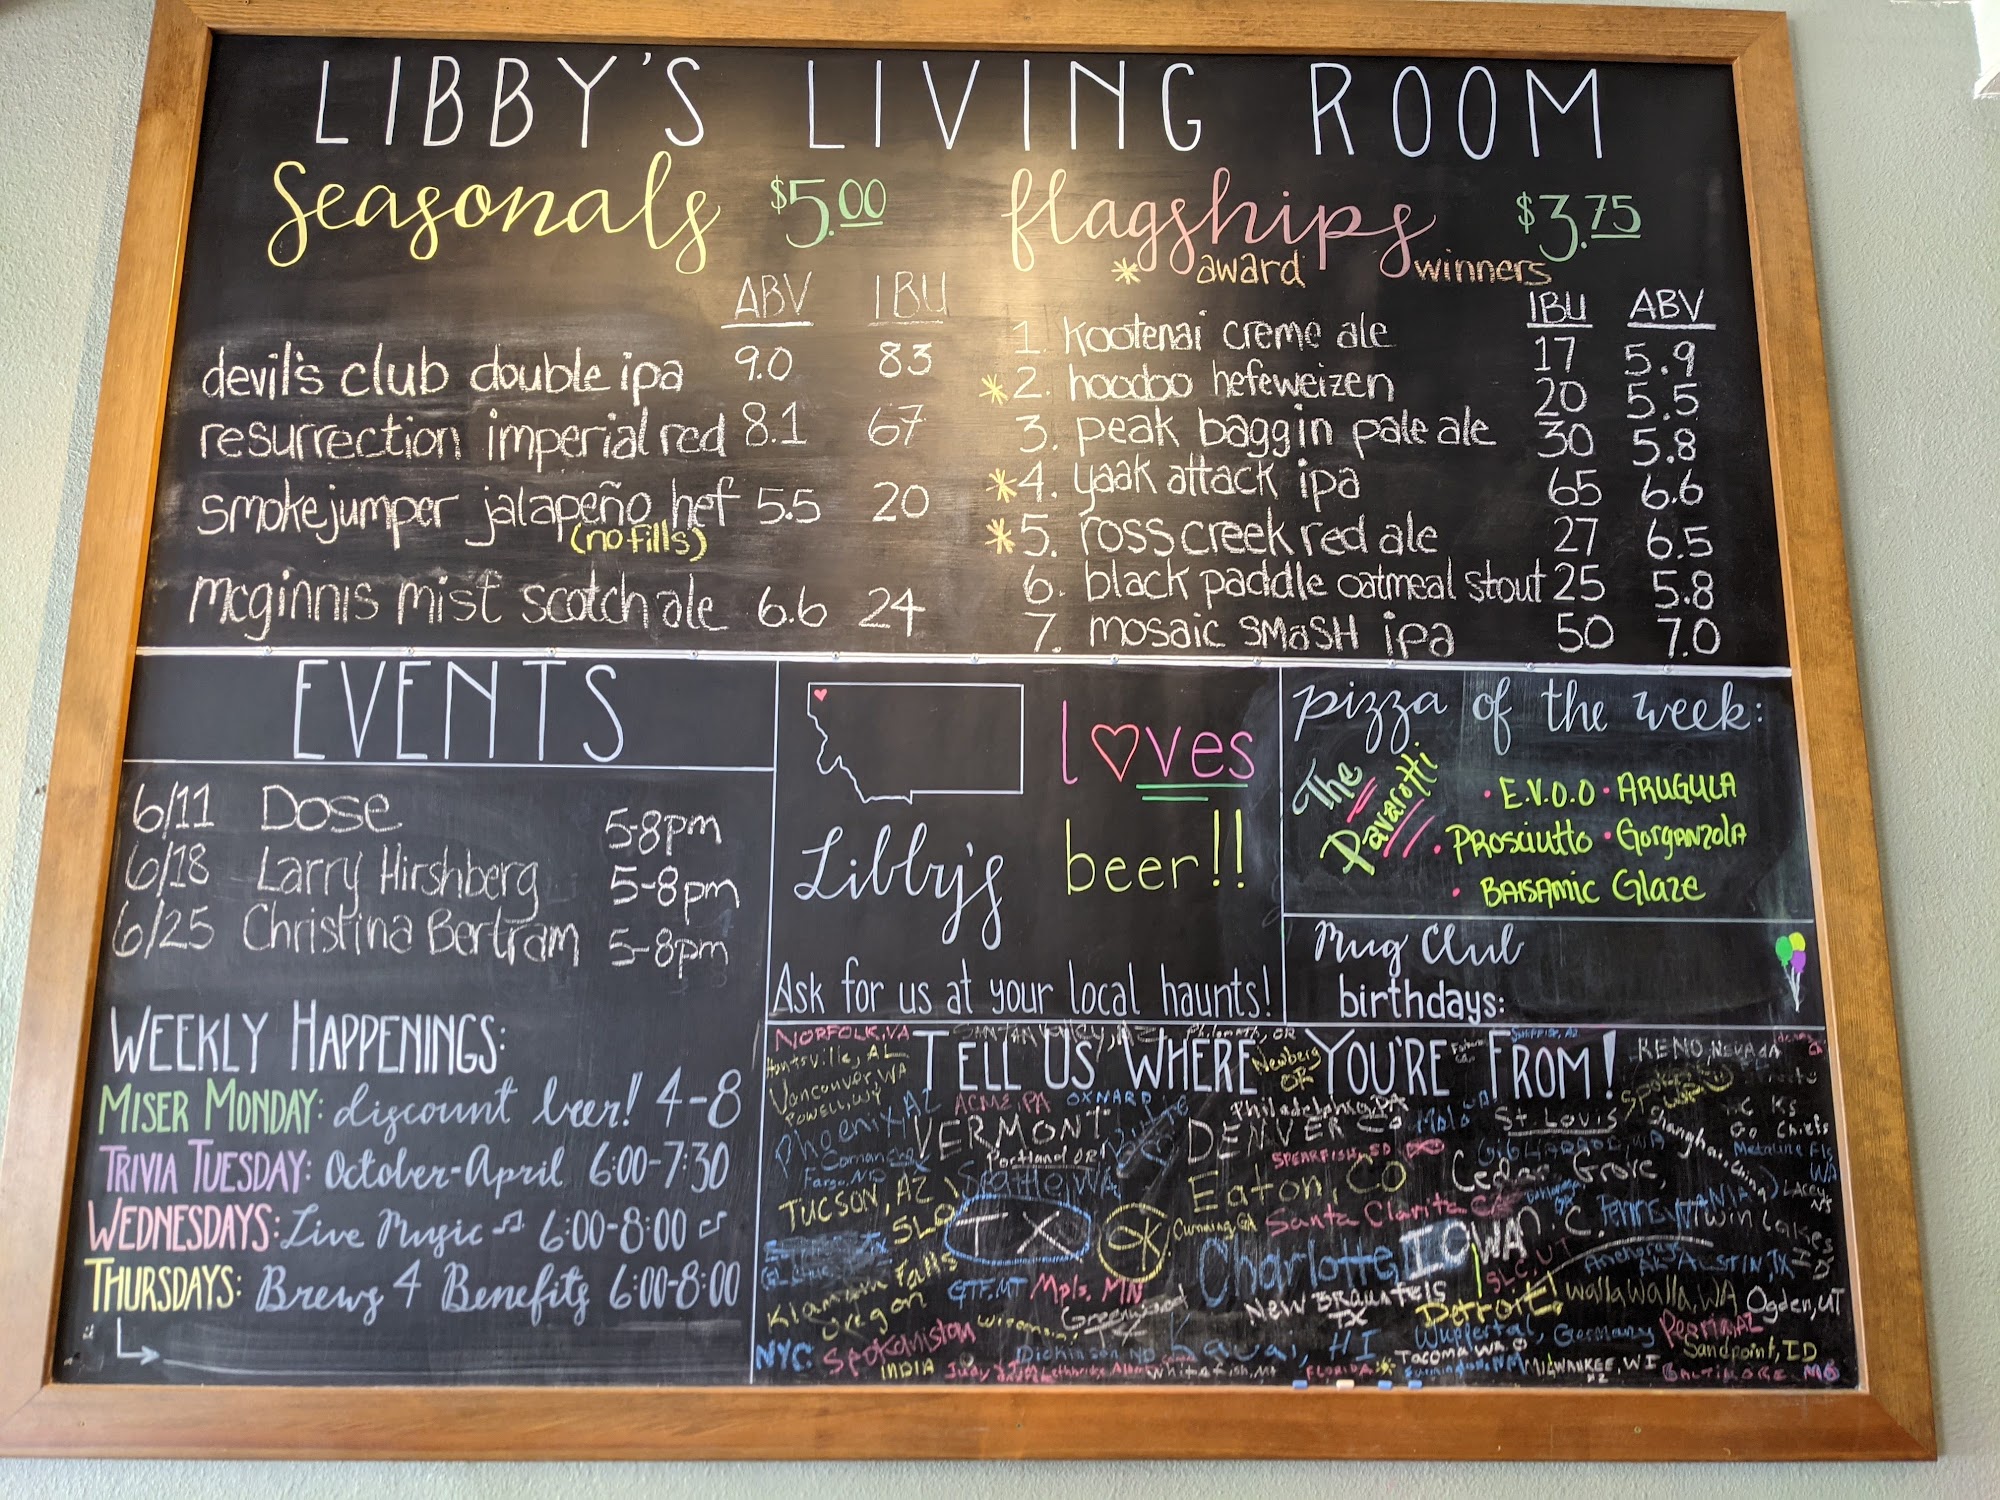 LIBBY'S LIVING ROOM
Seasonals $5.00
ABV IBU
devil's club double ipa 9.0 83
resurrection imperial red 8.1 67
smokejumper jalapeño hef 5.5 20
(no fills)
mcginnis mist scotch ale 6.6 24
flagships $3.75
* award winners
IBU ABV
1. kootenai creme ale 17 5.9
* 2. hoodoo hefeweizen 20 5.5
3. peak baggin pale ale 30 5.8
* 4. yaak attack ipa 65 6.6
* 5. ross creek red ale 27 6.5
6. black paddle oatmeal stout 25 5.8
7. mosaic SMaSH ipa 50 7.0
EVENTS
6/11 Dose 5-8pm
6/18 Larry Hirshberg 5-8pm
6/25 Christina Bertram 5-8pm
WEEKLY HAPPENINGS:
MISER MONDAY: discount beer! 4-8
TRIVIA TUESDAY: October-April 6:00-7:30
WEDNESDAYS: Live Music 6:00-8:00
THURSDAYS: Brews 4 Benefits 6:00-8:00
Libby's
loves
beer!!
Ask for us at your local haunts!
pizza of the week:
The Pavarotti
• E.V.O.O • ARUGULA
• PROSCIUTTO • GORGANZOLA
• BALSAMIC GLAZE
Mug Club
birthdays:
TELL US WHERE YOU'RE FROM!
NORFOLK, VA
Huntsville, AL
Vancouver, WA
POWELL, WY
Newberg OR
RENO, NEVADA
Phoenix, AZ
ACME, PA
OXNARD
Philadelphia, PA
ST. LOUIS
VERMONT
DENVER CO
Go Chiefs
Portland OR
SPEARFISH, SD
Shanghai, China
Fargo, ND
Seattle, WA
Eaton, CO
Cedar Grove, N.C.
TUCSON, AZ
SLO
TX
OK
Cumming, GA
Santa Clarita CA
PENNSYLVANIA
Twin Lakes ID
Charlotte
IOWA
SLC, UT
AUSTIN, TX
Klamath Falls Oregon
GTF, MT
Mpls, MN
Greenwood
NEW BRAUNFELS TX
Detroit!
Walla Walla, WA
Ogden, UT
NYC
Spokaniston
Wisconsin
Dickinson, ND
Kauai, HI
Wuppertal, Germany
Peoria, AZ
Sandpoint, ID
INDIA
Whitefish, MT
FLORIDA
TACOMA WA
MILWAUKEE, WI
BALTIMORE, MD